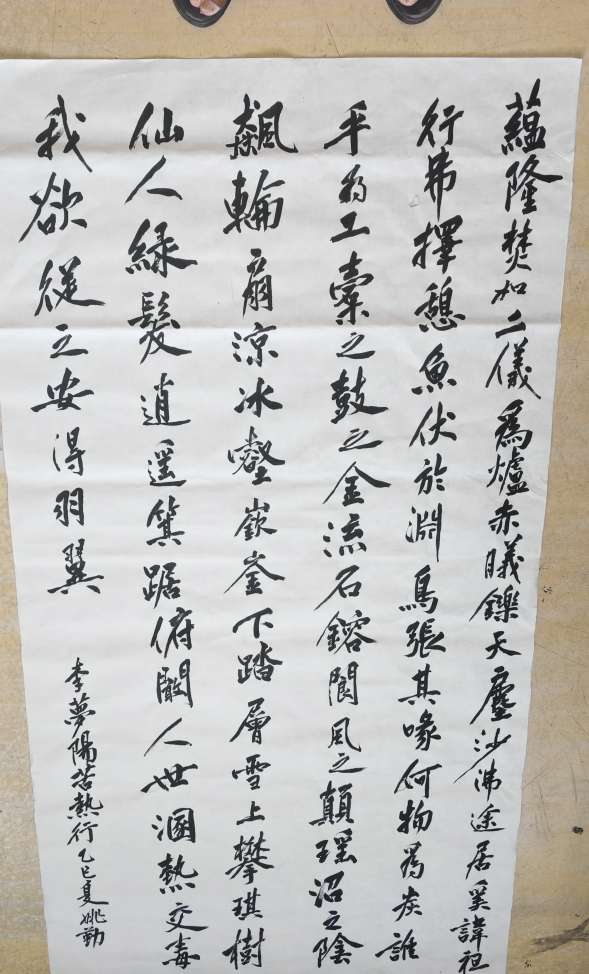 蘊隆焚如二儀爲爐赤曦鑠天塵沙沸途居奚諱袒
行弗擇憩魚伏於淵鳥張其喙何物爲炭誰
乎爲工橐之鼓之金流石鎔閬風之顛瑤沼之陰
飆輪扇涼冰壑嶔崟下踏層雪上攀琪樹
仙人綠髮逍遙箕踞俯闞人世溷熱交毒
我欲從之安得羽翼
李夢陽苦熱行乙巳夏姚勤